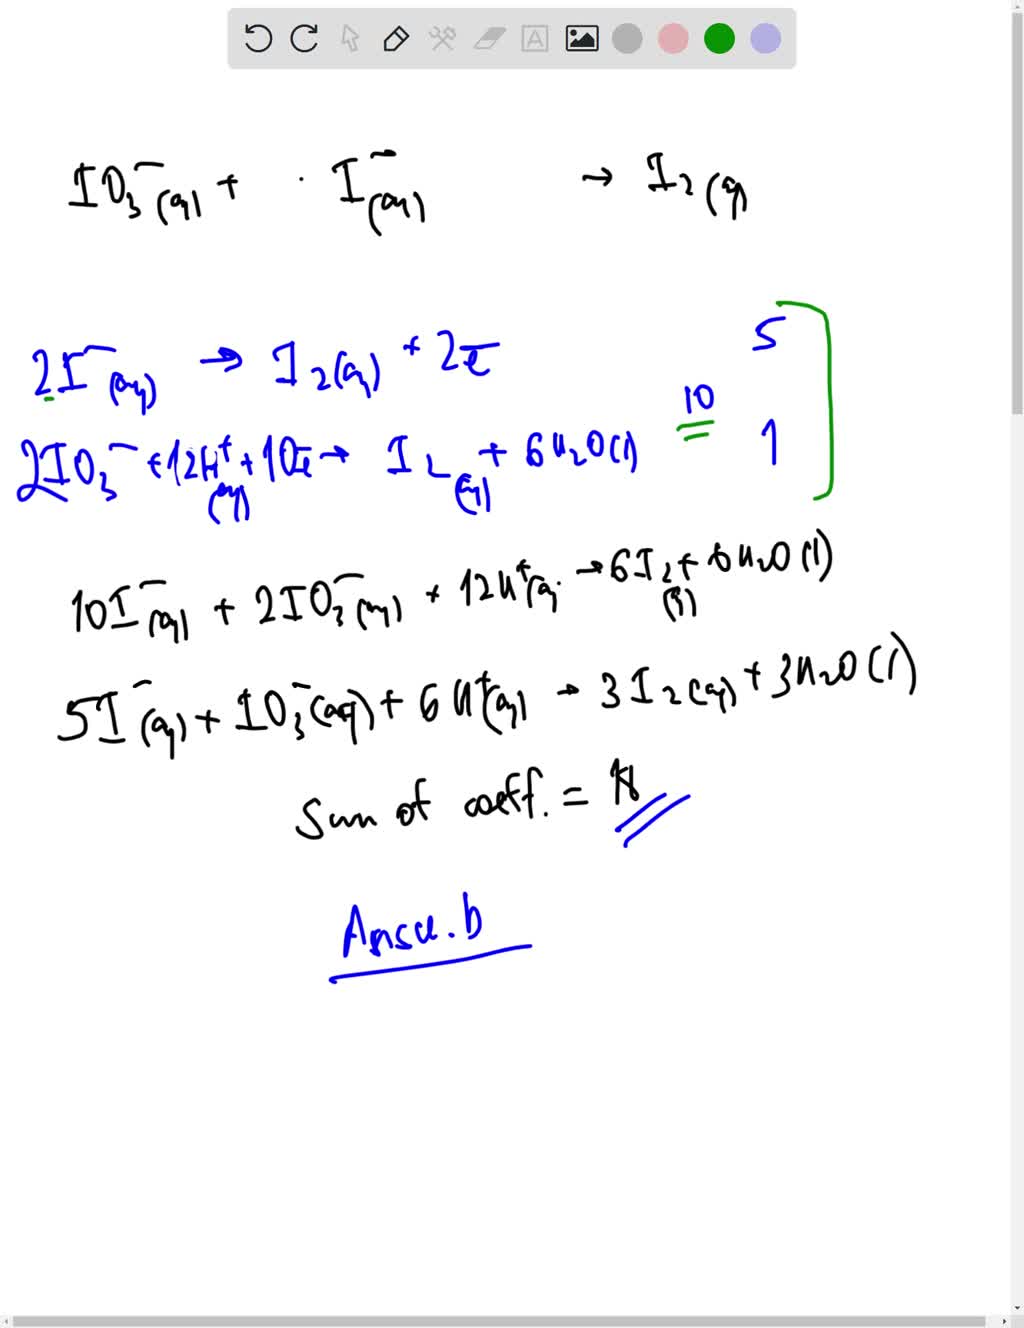 IO₃⁻(aq) + I⁻(aq) → I₂(q)
2I⁻(aq) → I₂(q) + 2e 5
2IO₃⁻ + 12H⁺(aq) + 10e → I₂(q) + 6H₂O(l) 10 1
10I⁻(aq) + 2IO₃⁻(aq) + 12H⁺(q → 6I₂(q) + 6H₂O(l)
5I⁻(q) + IO₃⁻(aq) + 6H⁺(q) → 3I₂(aq) + 3H₂O(l)
Sum of coeff. =
b